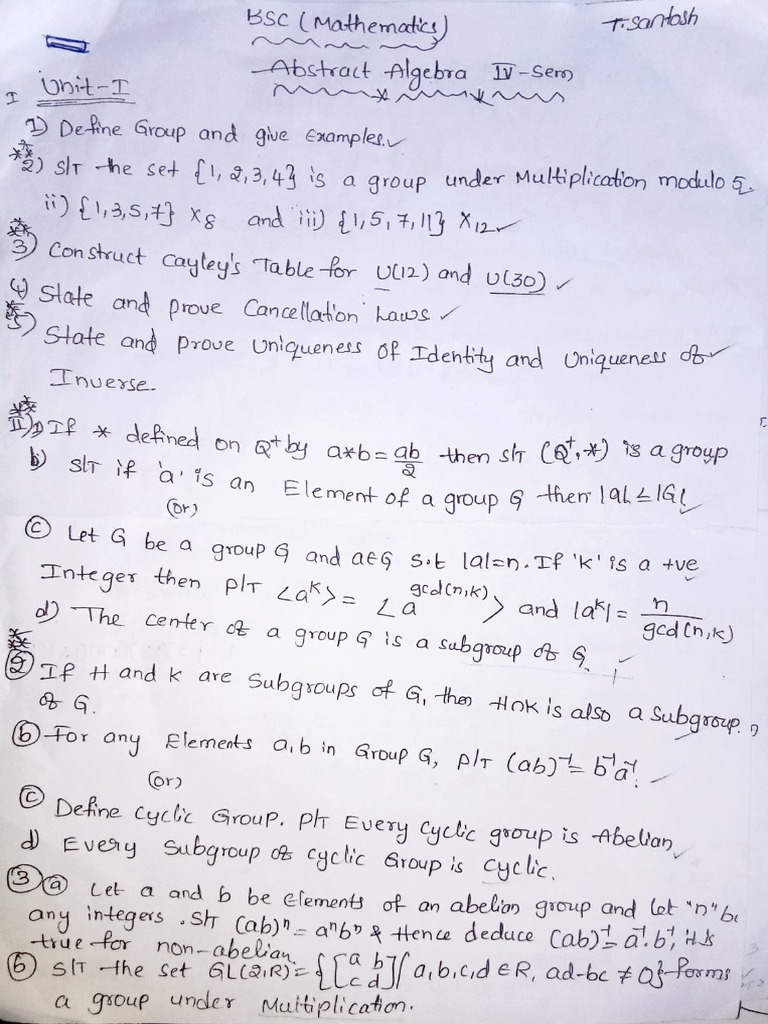 BSC (Mathematics)
T. Santosh
Abstract Algebra IV-Sem
I Unit-I
1) Define Group and give Examples. ✓
** 2) S/T the set {1, 2, 3, 4} is a group under Multiplication modulo 5.
ii) {1, 3, 5, 7} X8 and iii) {1, 5, 7, 11} X12 ✓
** 3) Construct Cayley's Table for U(12) and U(30) ✓
4) State and prove Cancellation Laws ✓
** 5) State and prove Uniqueness of Identity and Uniqueness of ✓
Inverse.
** II) 1) If * defined on Q⁺ by a*b = ab/2 then S/T (Q⁺, *) is a group
b) S/T if 'a' is an Element of a group G then |a| ≤ |G| ✓
(or)
c) Let G be a group G and a∈G s.t |a|=n. If 'k' is a +ve
Integer then P/T <a^k> = <a^gcd(n,k)> and |a^k| = n/gcd(n,k)
d) The center of a group G is a subgroup of G. ✓
** 2) If H and K are Subgroups of G, then H∩K is also a Subgroup.
of G.
b) For any Elements a, b in Group G, P/T (ab)⁻¹ = b⁻¹a⁻¹. ✓
(or)
c) Define Cyclic Group. P/T Every Cyclic group is Abelian ✓
d) Every Subgroup of cyclic Group is cyclic.
3) a) Let a and b be Elements of an abelian group and let "n" be
any integers. S/T (ab)ⁿ = aⁿbⁿ & Hence deduce (ab)⁻¹ = a⁻¹.b⁻¹,
true for non-abelian.
b) S/T the set GL(2,R) = {[a b c d] / a, b, c, d ∈ R, ad-bc ≠ 0} forms
a group under Multiplication.